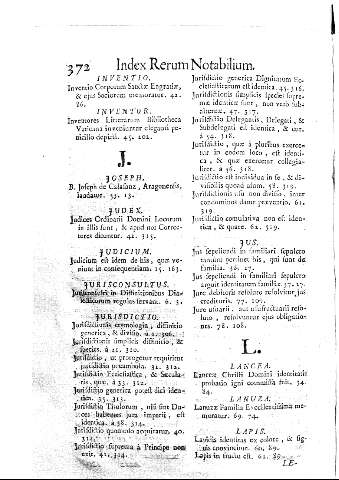 372 Index Rerum Notabilium.
INVENTIO.
Inventio Corporum Sanctæ Engratiæ,
& ejus Sociorum memoratur. 42.
26.
INVENTUR.
Inventores Litterarum Bibliotheca
Vaticana inveniuntur eleganti pe-
nicillo depicti. 45. 102.
J.
JOSEPH.
B. Joseph de Calasanz, Aragonensis,
laudatur. 53. 13.
JUDEX.
Judices Ordinarii Domini Locorum
in illis sunt, & apud nos Corre-
ctores dicuntur. 42. 315.
JUDICIUM.
Judicium est idem de his, quæ ve-
niunt in consequentiam. 15. 163.
JURISCONSULTUS.
in Diffinitionibus Dia-
lecticorum regulas servant. 6. 3.
JURISDICTIO.
Jurisdictionis etymologia, diffinitio
generica, & divisio. à 22. 306.
Jurisdictionis simplicis diffinitio, &
species. à 21. 310.
Jurisdictio, ut prorogetur requiritur
jurisdictio præambula. 31. 312.
Jurisdictio Ecclesiastica, & Secula-
ris, quæ. à 33. 312.
Jurisdictio generica potest dici iden-
tica. 35. 313.
Jurisdictio Titulorum, nisi sint Du-
ces habentes jura imperii, est
identica. à 38. 314.
Jurisdictio quomodo acquiratur. 40.
314.
Jurisdictio suprema à Principe non
exit. 41. 314.
Jurisdictio generica Dignitatum Ec-
clesiasticarum est identica. 45. 316.
Jurisdictionis simplicis species supre-
mæ identicæ sunt, non verò sub-
alternæ. 47. 317.
Jurisdictio Delegantis, Delegati, &
Subdelegati est identica, & cur.
à 54. 318.
Jurisdictio, quæ à pluribus exerce-
tur in eodem loco, est identi-
ca, & quæ exercetur collegia-
liter. à 56. 318.
Jurisdictio est individua in se, & di-
visibilis quoad usum. 58. 319.
Jurisdictionis usu non diviso, inter
condominos datur præventio. 61.
319.
Jurisdictio cumulativa non est iden-
tica, & quare. 62. 319.
JUS.
Jus sepeliendi in familiari sepulcro
tantùm pertinet his, qui sunt de
familia. 36. 17.
Jus sepeliendi in familiari sepulcro
arguit identitatem familiæ. 37. 17.
Jure debitoris resoluto resolvitur jus
creditoris. 77. 107.
Jure utitarii, aut usufructuarii reso-
luto, resolvuntur ejus obligatio-
nes. 78. 108.
L.
LANCEA.
Lanceæ Christi Domini identitatis
probatio igni commissa fuit. 34.
84.
LANUZA.
Lanuzæ Familia Excellentissima me-
moratur. 69. 74.
LAPIS.
Lapidis identitas ex colore, & sig-
nis convincitur. 60. 89.
Lapis in frustra est. 61. 89.
LE-